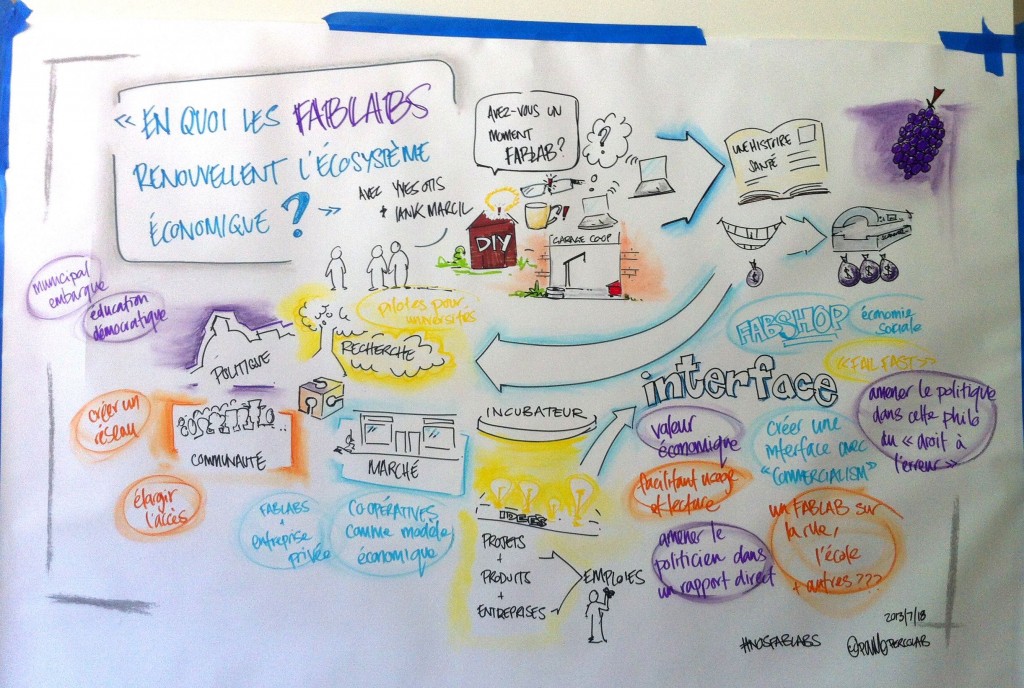 « EN QUOI LES FABLABS
RENOUVELLENT L'ÉCOSYSTÈME
ÉCONOMIQUE ? »
AVEC YVES OTIS
+ IANIK MARCIL
AVEZ-VOUS UN
MOMENT
FABLAB?
?
DIY
GARAGE COOP
UNE HISTOIRE
SANTÉ
$
$ $ $
municipal
embarque
éducation
démocratique
pilotes pour
universités
POLITIQUE
RECHERCHE
créer un
réseau
COMMUNAUTÉ
MARCHÉ
élargir
l'accès
FABLABS
+
entreprise
privée
COOPÉRATIVES
comme modèle
économique
INCUBATEUR
IDÉES
PROJETS
+
PRODUITS
+
ENTREPRISES
EMPLOIES
FABSHOP
économie
sociale
«FAIL FAST»
interface
valeur
économique
créer une
interface avec
"COMMERCIALISM"
amener le politique
dans cette philo
du « droit à
l'erreur »
facilitant usage
et lecture
amener le
politicien dans
un rapport direct
un FABLAB sur
la rue,
l'école
+ autres???
2013/7/18
#NOSFABLABS
PERCOLAB